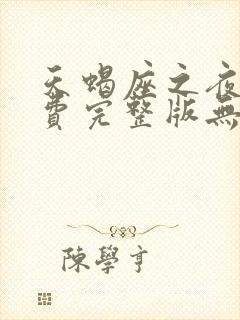 天蝎座之夜
費完整版無
陳學亨